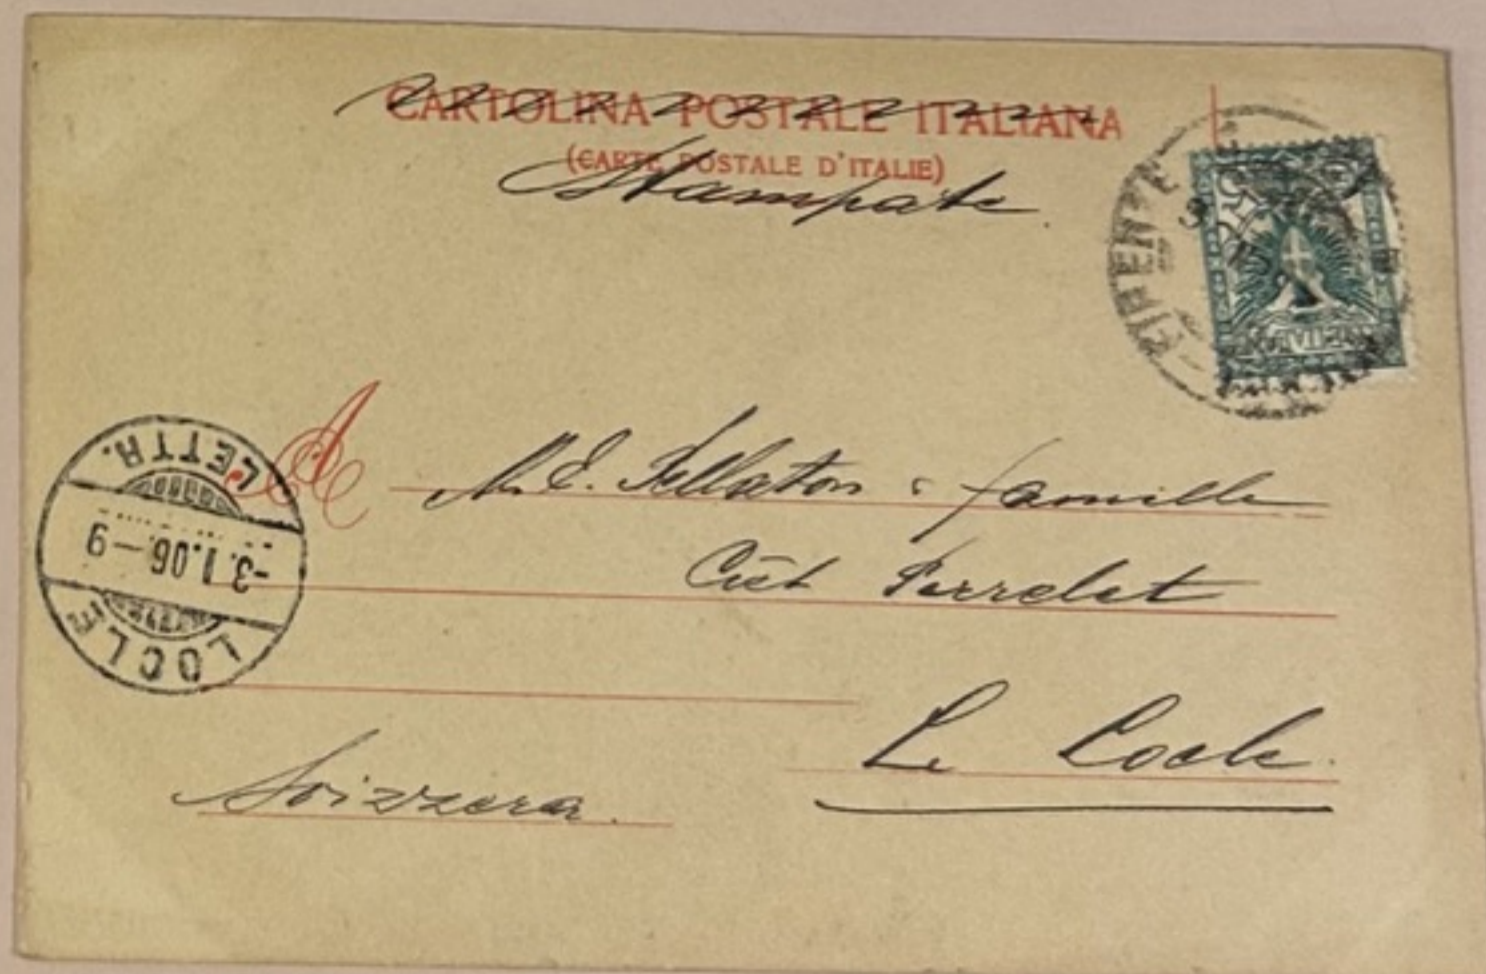 CARTOLINA POSTALE ITALIANA
(CARTE POSTALE D'ITALIE)
Stampate.
FIRENZE
5
A
M. E. Fellaton & famille
Crêt Perrelet
Le Locle.
Svizzera.
LETTR.
-3.1.06.-9
LOCLE